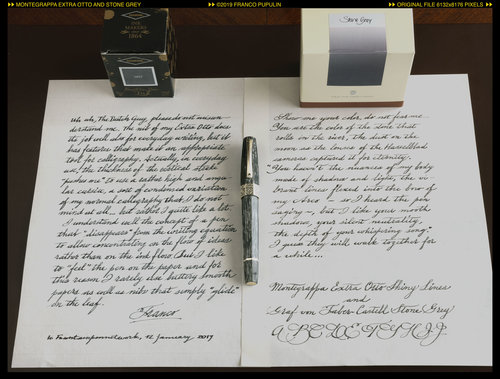 MONTEGRAPPA EXTRA OTTO AND STONE GREY
©2019 FRANCO PUPULIN
ORIGINAL FILE 6132x8176 PIXELS
INK
MAKERS
1864
Stone Grey
The Dutch Guy, please do not misun-
derstand me. The nib of my Extra Otto does
its job well also for everyday writing, but it
has features that make it an appropriate
tool for calligraphy. Actually, in everyday
use, the thickness of the vertical stroke
"pushes me" to write rather high and angu-
lar cursive, a sort of condensed variation
of my normal calligraphy that I do not
mind at all, but rather I quite like a lot.
I understand well the concept of a pen
that "disappears" from the writing equation
to allow concentrating on the flow of ideas
rather than on the ink flow. But I like
to "feel" the pen on the paper and for
this reason I rarely like buttery smooth
papers as well as nibs that simply "glide"
on the leaf.
Franco
to Fountainpennetwork, 12 January, 2019
Show me your color, do not fear me.
You are the color of the stone that
rolls on the river, the dust on the
moon as the lenses of the Hasselblad
cameras captured it for eternity.
"You haven't the nuances of my body
made of shadows and light, the vi-
brant lines fixed into the bow of
my Arco - so I heard the pen
saying - but I like your mouth
shadows, your silent neutrality
the depth of your whispering song".
I guess they will walk together for
a while...
Montegrappa Extra Otto Shiny Lines
and
Graf von Faber-Castell Stone Grey